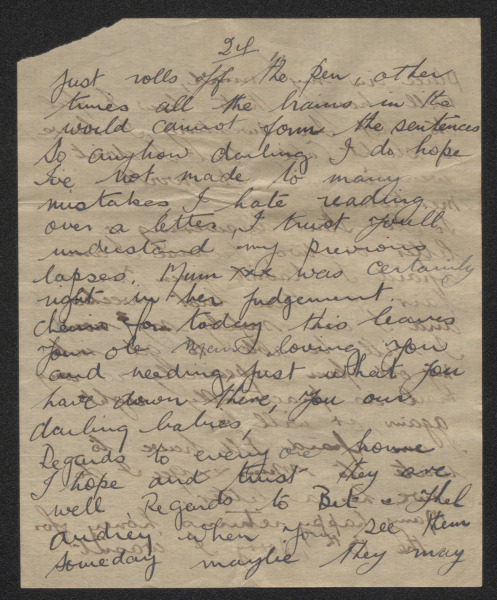 24
Just rolls off the pen, other
times all the brains in the
world cannot form the sentences
So anyhow darling I do hope
I've not made to many
mistakes I hate reading
over a letter, I trust you'll
understand my previous
lapses. Mum xxx was certainly
right in her judgement.
cheerio for today this leaves
your ole man loving you
and needing just what you
have down there, you our
darling babies,
Regards to every one home
I hope and trust they are
well Regards to Bet Ethel
Audrey when you see them
someday maybe they may